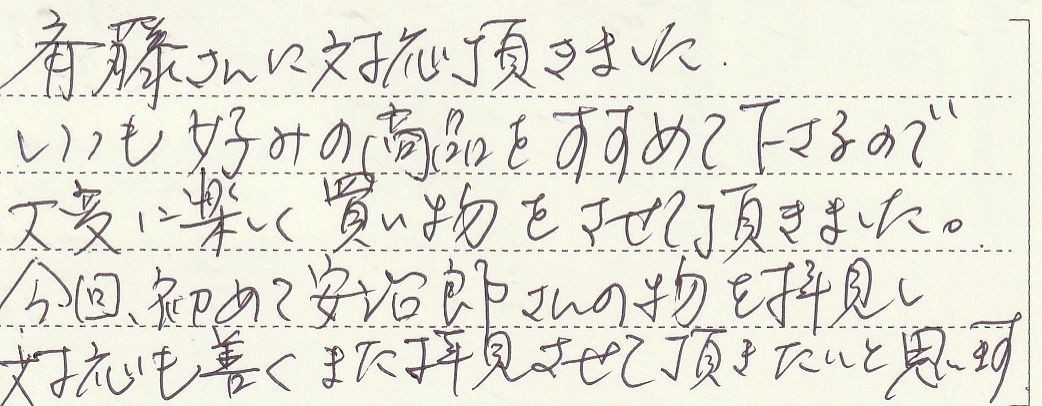 斉藤さんに対応頂きました.
いつも好みの商品をすすめて下さるので
大変に楽しく買い物をさせて頂きました。
今回、初めて安治郎さんの物を拝見し
対応も善くまた拝見させて頂きたいと思います